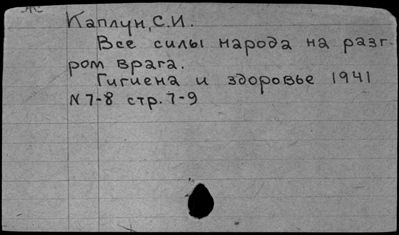 Каплун, С.И.
Все силы народа на разг-
ром врага.
Гигиена и здоровье 1941
N 7-8 стр. 7-9